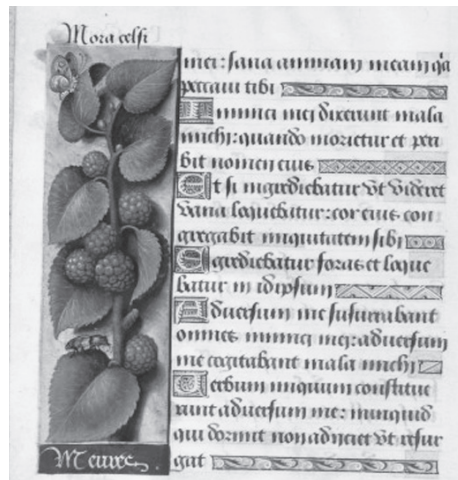 Mora celsi
mei: sana animam meam q̄a
peccaui tibi
Inimici mei dixerunt mala
michi: quando morietur et peri
bit nomen eius
Et si ingrediebatur vt videret
vana loquebatur: cor eius con
gregabit iniquitatem sibi
Egrediebatur foras et loque
batur in idipsum
Aduersum me susurrabant
omnes inimici mei: aduersum
me cogitabant mala michi
Verbum iniquum constitue
runt aduersum me: nunquid
qui dormit non adiiciet vt resur
gat
Meures.